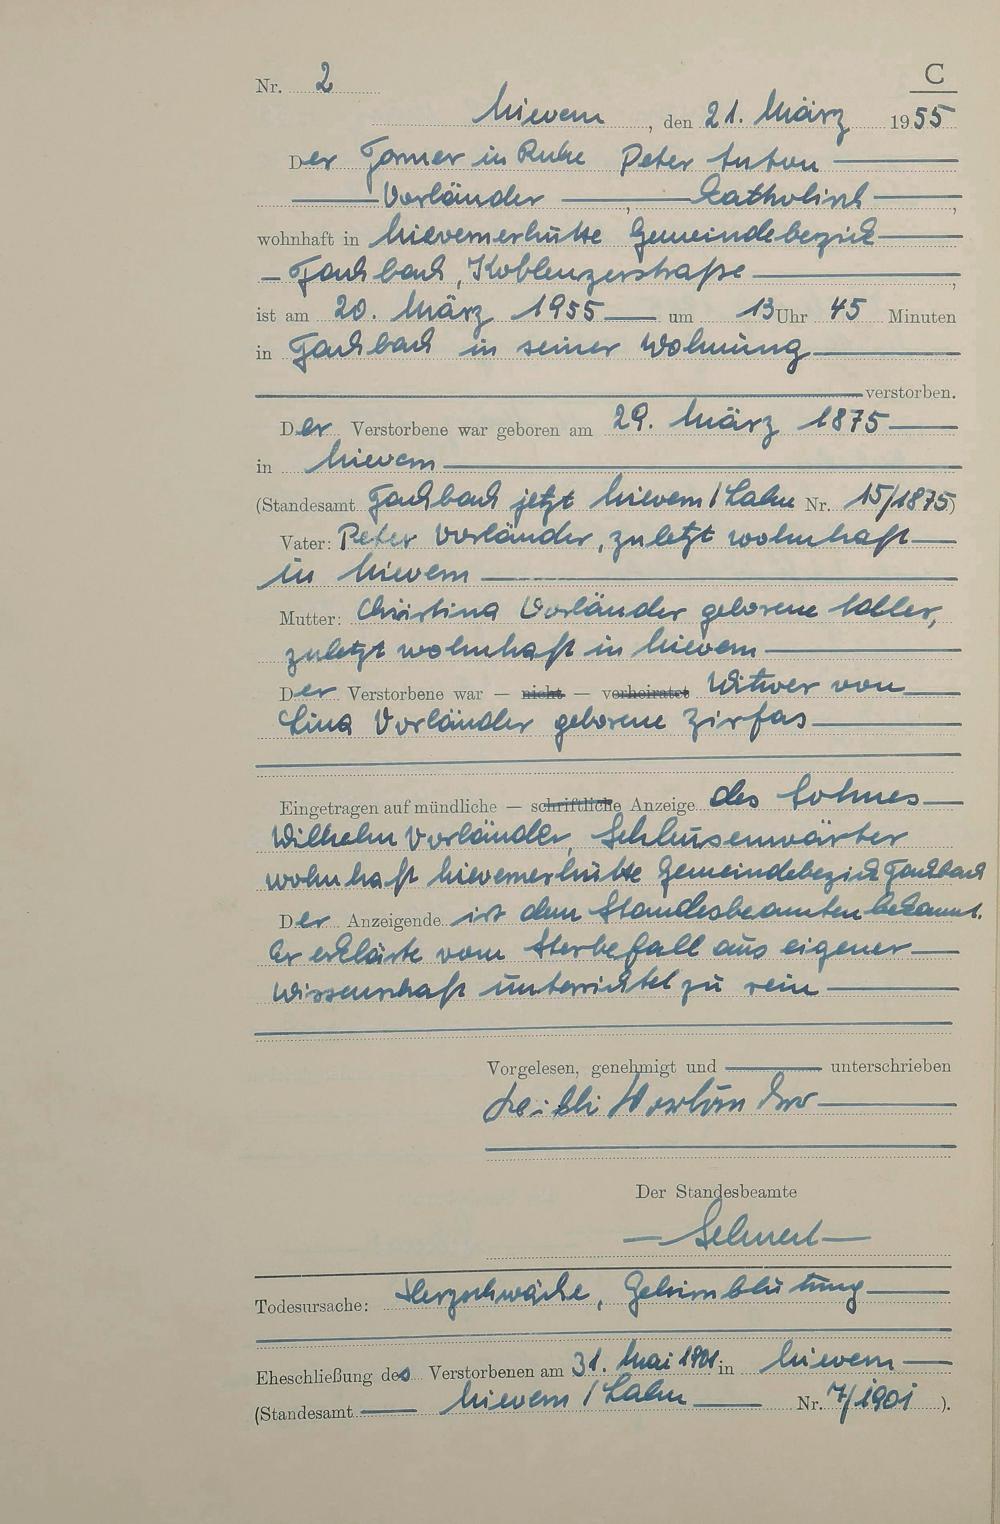 C
Nr. 2
Nievern, den 21. März 1955
Der Former in Ruhe Peter Anton
Vorländer, katholisch,
wohnhaft in Nievernerhütte Gemeindebezirk
Fachbach, Koblenzerstraße,
ist am 20. März 1955 um 13 Uhr 45 Minuten
in Fachbach in seiner Wohnung
verstorben.
Der Verstorbene war geboren am 29. März 1875
in Nievern
(Standesamt Fachbach jetzt Nievern/Lahn Nr. 15/1875)
Vater: Peter Vorländer, zuletzt wohnhaft
in Nievern
Mutter: Christina Vorländer geborene
zuletzt wohnhaft in Nievern
Der Verstorbene war — nicht — verheiratet Witwer von
Lina Vorländer geborene Zirfas
Eingetragen auf mündliche — schriftliche Anzeige des Sohnes
Wilhelm Vorländer, Schleusenwärter
wohnhaft Nievernerhütte Gemeindebezirk Fachbach
Der Anzeigende ist dem Standesbeamten bekannt.
Er erklärte vom Sterbefall aus eigener
Wissenschaft unterrichtet zu sein
Vorgelesen, genehmigt und unterschrieben
Vorländer
Der Standesbeamte
Todesursache: Herzschwäche, Gehirnblutung
Eheschließung des Verstorbenen am 31. Mai 1901 in Nievern
(Standesamt Nievern/Lahn Nr. 7/1901).